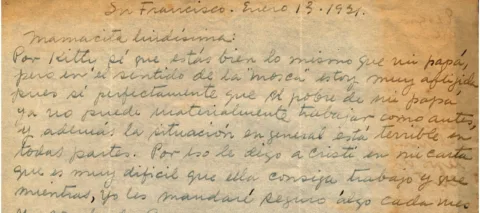 Sn Francisco. Enero 13. 1931.
Mamacita lindísima:
Por Kitty sé que estás bien lo mismo que mi papá,
pero en el sentido de la "mosca" estoy muy afligida
pues sé perfectamente que el pobre de mi papá
ya no puede materialmente trabajar como antes,
y además la situación en general está terrible en
todas partes. Por eso le digo a Cristi en mi carta
que es muy difícil que ella consiga trabajo y que
mientras, yo les mandaré seguro algo cada mes